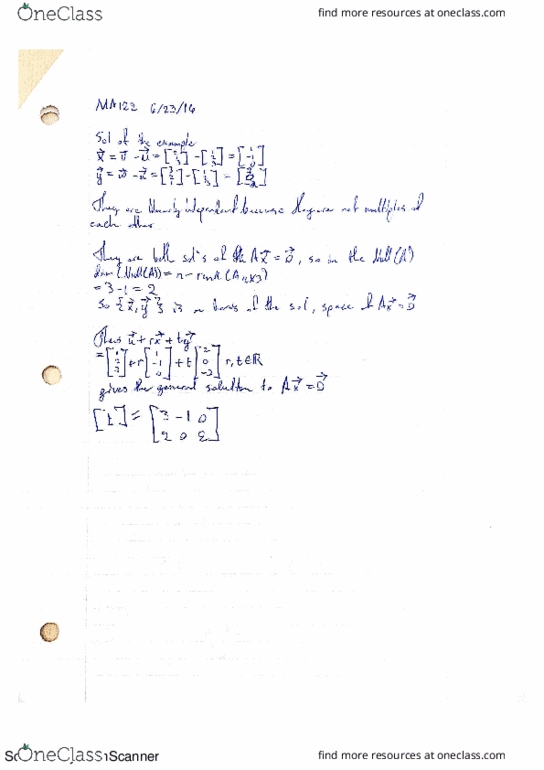 OneClass
find more resources at oneclass.com
MA122 6/23/16
Sol of the example
x = v - u = [2 1 3] - [1 2 3] = [1 -1 0]
y = w - u = [3 2 1] - [1 2 3] = [2 0 -2]
They are linearly independent because they are not multiples of
each other
They are both sol's of the Ax = 0, so in the Null(A)
dim(Null(A)) = n - rank(A
= 3 - 1 = 2
So {x, y} is a basis of the sol, space of Ax = 0
Thus u + rx + ty
= [1 2 3] + r [1 -1 0] + t [2 0 -2] r, t ∈ R
gives the general solution to Ax = b
[ ] = [3 -1 0
2 0 2]
OneClass
Scanner
find more resources at oneclass.com